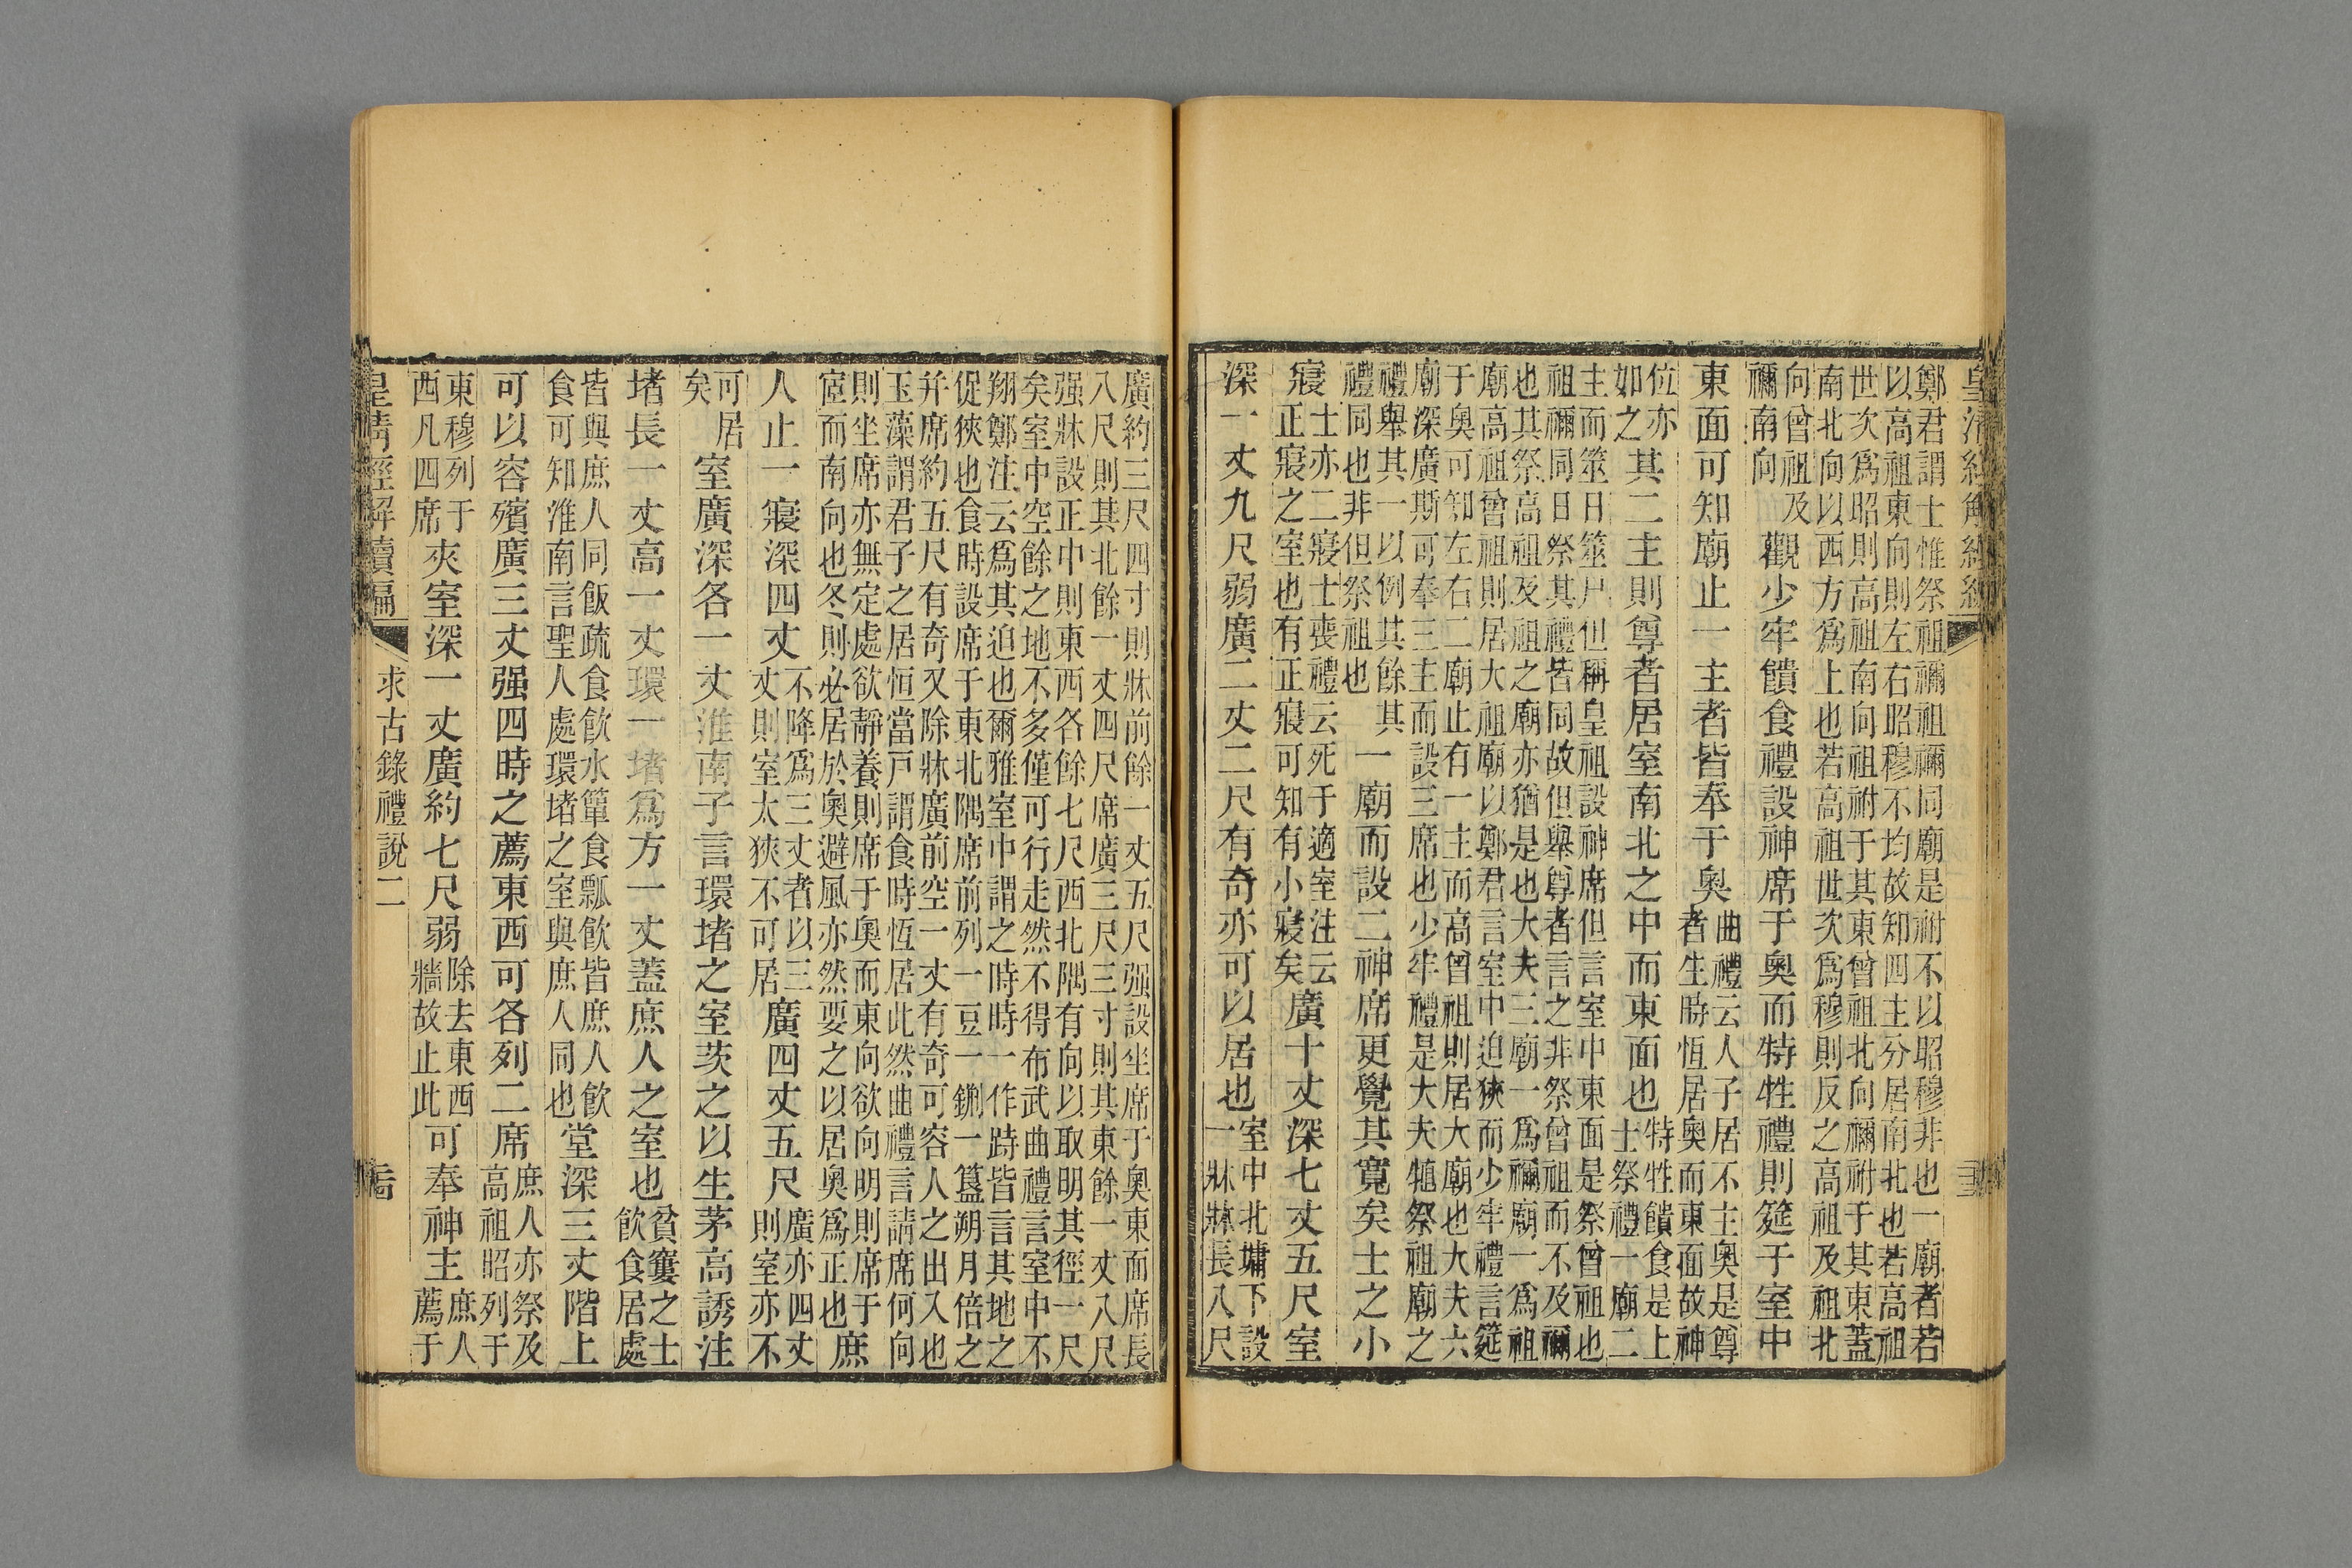 皇清經解續編
鄭君謂士惟祭祖禰祖禰同廟是祔不以昭穆非也一廟者若
以高祖東向則左右昭穆不均故知四主分居南北也若高祖
世次爲昭則高祖南向祖祔于其東曾祖北向禰祔于其東蓋
南北向以西方爲上也若高祖世次爲穆則反之高祖及祖北
向曾祖及
禰南向
觀少牢饋食禮設神席于奧而特牲禮則筵于室中
東面可知廟止一主者皆奉于奧
曲禮云人子居不主奧是尊
者生時恆居奧而東面故神
位亦
如之
其二主則尊者居室南北之中而東面也
特牲饋食是上
士祭禮一廟二
主而筮日筮尸但稱皇祖設神席但言室中東面是祭曾祖也
祖禰同日祭其禮皆同故但舉尊者言之非祭曾祖而不及禰
也其祭高祖及祖之廟亦猶是也大夫三廟一爲禰廟一爲祖
廟高祖曾祖則居大祖廟以鄭君言室中迫狹而少牢禮言筵
于奧可知左右二廟止有一主而高曾祖則居大廟也大夫六
廟深廣斯可奉三主而設三席也少牢禮是大夫牠祭祖廟之
禮舉其一以例其餘其
禮同也非但祭祖也
一廟而設二神席更覺其寬矣士之小
寢
士亦二寢士喪禮云死于適室注云
正寢之室也有正寢可知有小寢矣
廣十丈深七丈五尺室
深一丈九尺弱廣二丈二尺有奇亦可以居也
室中北墉下設
一牀牀長八尺
廣約三尺四寸則牀前餘一丈五尺强設坐席于奧東面席長
八尺則其北餘一丈四尺席廣三尺三寸則其東餘一丈八尺
强牀設正中則東西各餘七尺西北隅有向以取明其徑一尺
矣室中空餘之地不多僅可行走然不得布武曲禮言室中不
翔鄭注云爲其迫也爾雅室中謂之時時一作跱皆言其地之
促狹也食時設席于東北隅席前列一豆一鉶一簋朔月倍之
幷席約五尺有奇又除牀廣前空一丈有奇可容人之出入也
玉藻謂君子之居恒當戶謂食時恆居此然曲禮言請席何向
則坐席亦無定處欲靜養則席于奧而東向欲向明則席于
窒而南向也冬則必居於奧避風亦然要之以居奧爲正也
庶
人止一寢深四丈
不降爲三丈者以三
丈則室太狹不可居
廣四丈五尺
廣亦四丈
則室亦不
可居
矣
室廣深各一丈淮南子言環堵之室茨之以生茅高誘注
堵長一丈高一丈環一堵爲方一丈蓋庶人之室也
貧窶之士
飲食居處
皆與庶人同飯疏食飲水簞食瓢飲皆庶人飮
食可知淮南言聖人處環堵之室與庶人同也
堂深三丈階上
可以容殯廣三丈强四時之薦東西可各列二席
庶人亦祭及
高祖昭列于
東穆列于
西凡四席
夾室深一丈廣約七尺弱
除去東西
牆故止此
可奉神主
庶人
薦于
皇清經解續編
求古錄禮說二